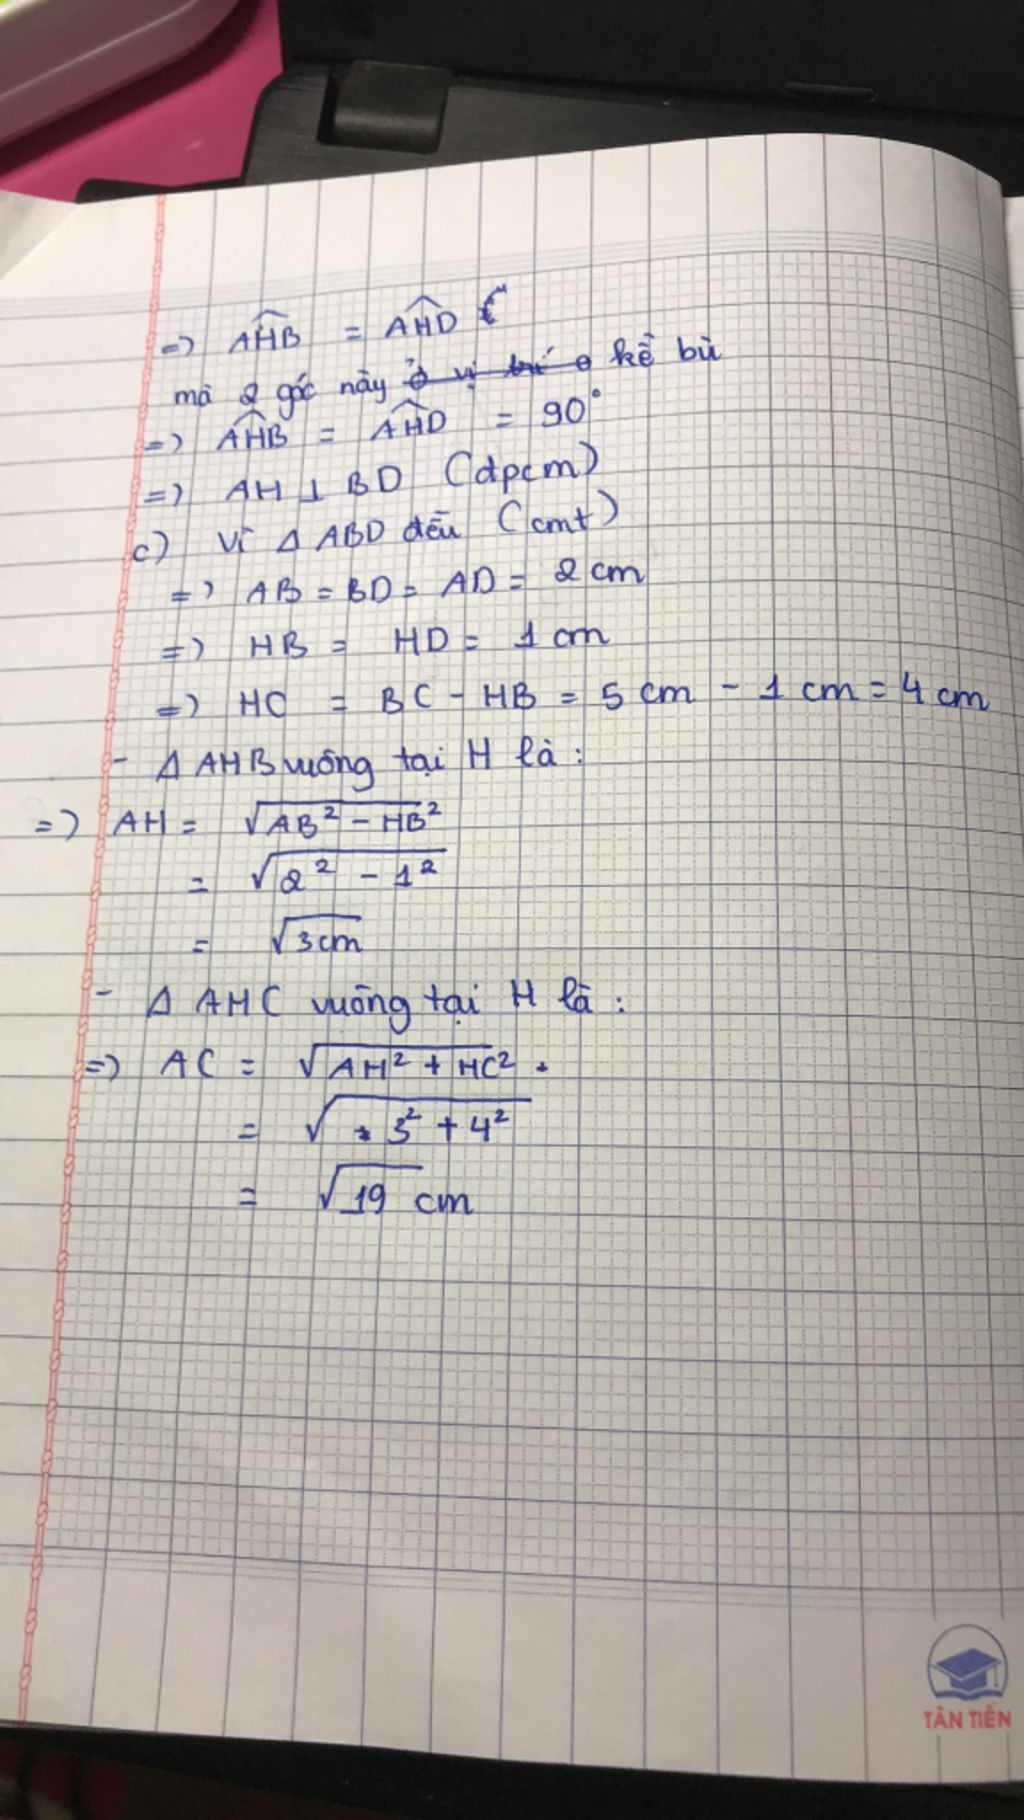 =) AHB = AHD
mà 2 góc này ở vị trí kề bù
=) AHB = AHD = 90°
=) AH ⊥ BD (đpcm)
c) Vì Δ ABD đều (cmt)
=) AB = BD = AD = 2 cm
=) HB = HD = 1 cm
=) HC = BC - HB = 5 cm - 1 cm = 4 cm
- Δ AHB vuông tại H là :
=) AH = √AB² - HB²
= √2² - 1²
= √3cm
- Δ AHC vuông tại H là :
=) AC = √AH² + HC² .
= √3² + 4²
= √19 cm
TÂN TIẾN